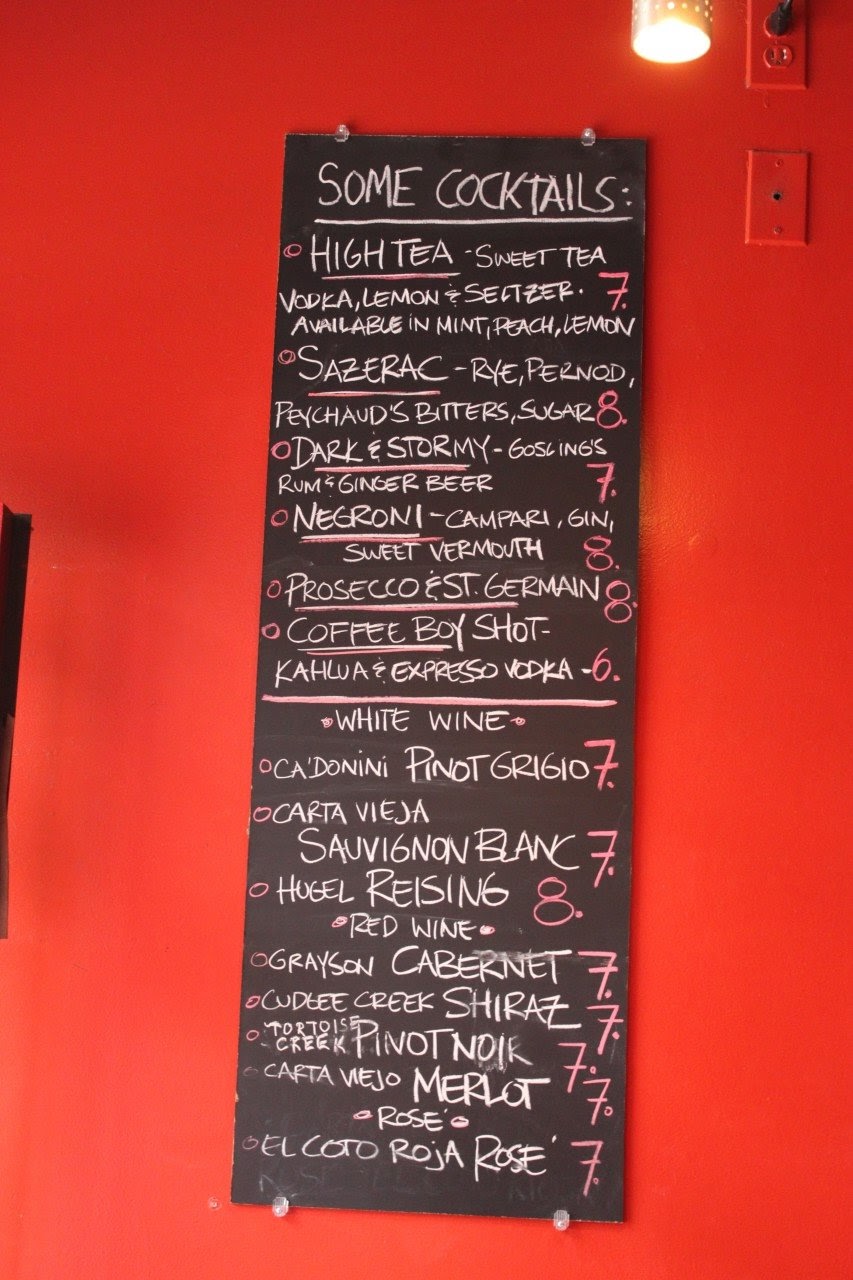 SOME COCKTAILS:
HIGH TEA - SWEET TEA
VODKA, LEMON & SELTZER. 7.
AVAILABLE IN MINT, PEACH, LEMON
SAZERAC - RYE, PERNOD,
PEYCHAUD'S BITTERS, SUGAR 8.
DARK & STORMY - GOSLING'S
RUM & GINGER BEER 7.
NEGRONI - CAMPARI, GIN,
SWEET VERMOUTH 8.
PROSECCO & ST. GERMAIN 8.
COFFEE BOY SHOT-
KAHLUA & EXPRESSO VODKA - 6.
WHITE WINE
CA'DONINI PINOT GRIGIO 7.
CARTA VIEJA
SAUVIGNON BLANC 7.
HUGEL REISING 8.
RED WINE
GRAYSON CABERNET 7.
CUDGEE CREEK SHIRAZ 7.
TORTOISE CREEK PINOT NOIR 7.
CARTA VIEJO MERLOT 7.
ROSE'
EL COTO ROJA ROSE' 7.